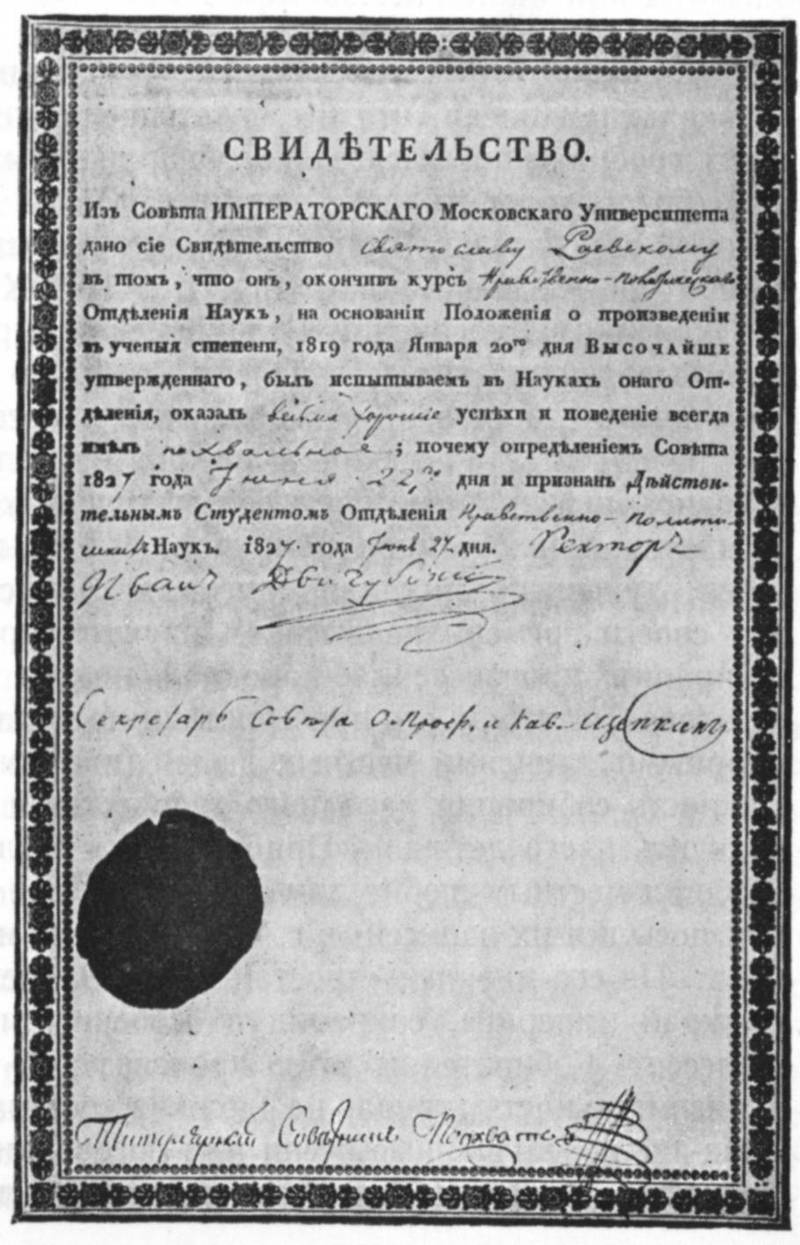 СВИДѢТЕЛЬСТВО.
Изъ Совѣта ИМПЕРАТОРСКАГО Московскаго Университета
дано сіе Свидѣтельство Святославу Раевскому
въ томъ, что онъ, окончивъ курсъ Нравственно-Политическаго
Отдѣленія Наукъ, на основаніи Положенія о произведеніи
въ ученыя степени, 1819 года Января 20го дня ВЫСОЧАЙШЕ
утвержденнаго, былъ испытываемъ въ Наукахъ онаго От-
дѣленія, оказалъ весьма хорошіе успѣхи и поведеніе всегда
имѣлъ похвальное; почему опредѣленіемъ Совѣта
1827 года Іюня 22го дня и признанъ Дѣйстви-
тельнымъ Студентомъ Отдѣленія Нравственно-Полити-
Наукъ. 1827 года Іюня 27 дня. Ректоръ
Иванъ Двигубскій
Секретарь Совѣта О. Проф. и Кав. Щепкинъ
Титулярный Совѣтникъ